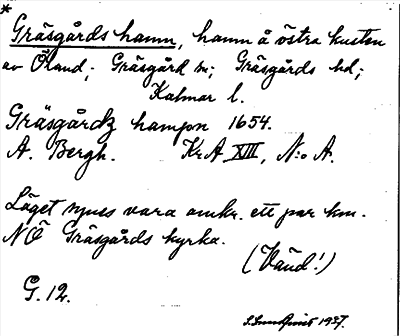 *
Gräsgårds hamn, hamn å östra kusten
av Öland; Gräsgård sn; Gräsgårds hd;
Kalmar l.
Gräsgårdz hampn 1654.
A. Bergh. KrA XIII, N:o A.
Läget synes vara omkr. ett par km.
NÖ Gräsgårds kyrka.
(Vänd!)
G. 12.
S. Sundqvist 1937.